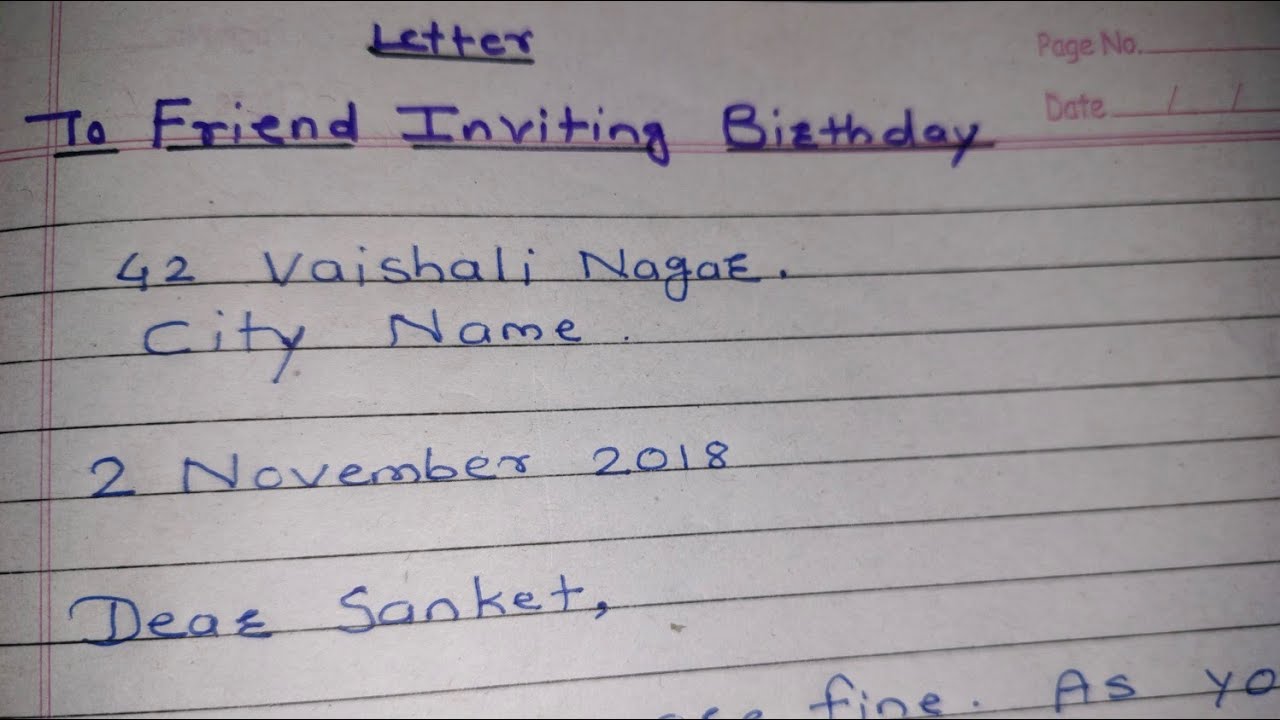 Letter
Page No.
Date / /
To Friend Inviting Birthday
42 Vaishali Nagar.
City Name.
2 November 2018
Dear Sanket,
fine. As yo